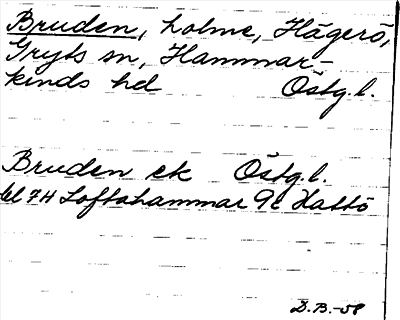 Bruden, holme, Hägerö,
Gryts sn, Hammar-
kinds hd Östg.l.
Bruden ek Östg.l.
bl 7H Loftahammar 9c Hattö
D.B.-58